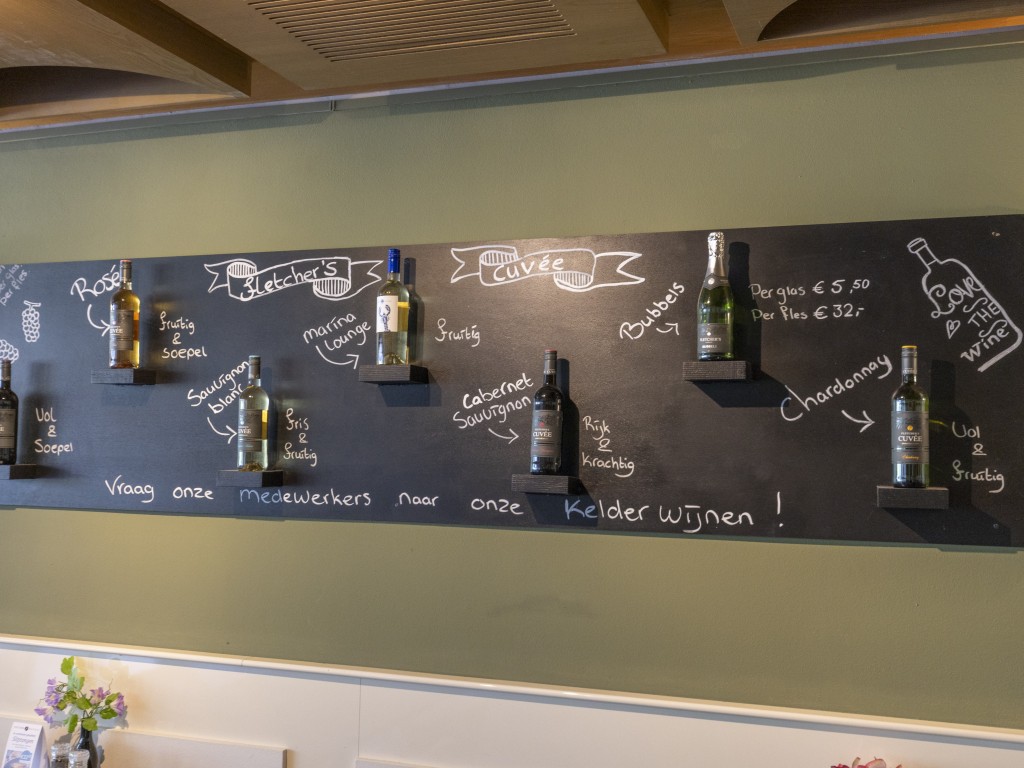 Rosé
fruitig
&
soepel
Vol
&
Soepel
Fletcher's
Cuvée
Sauvignon
blanc
fris
&
fruitig
marina
lounge
fruitig
Cabernet
Sauvignon
Rijk
&
Krachtig
Bubbels
Per glas € 5,50
Per fles € 32,-
Chardonnay
Vol
&
fruitig
Love
THE
Wine
Vraag onze medewerkers naar onze Kelder wijnen !
CUVÉE
CUVÉE
CUVÉE
CUVÉE